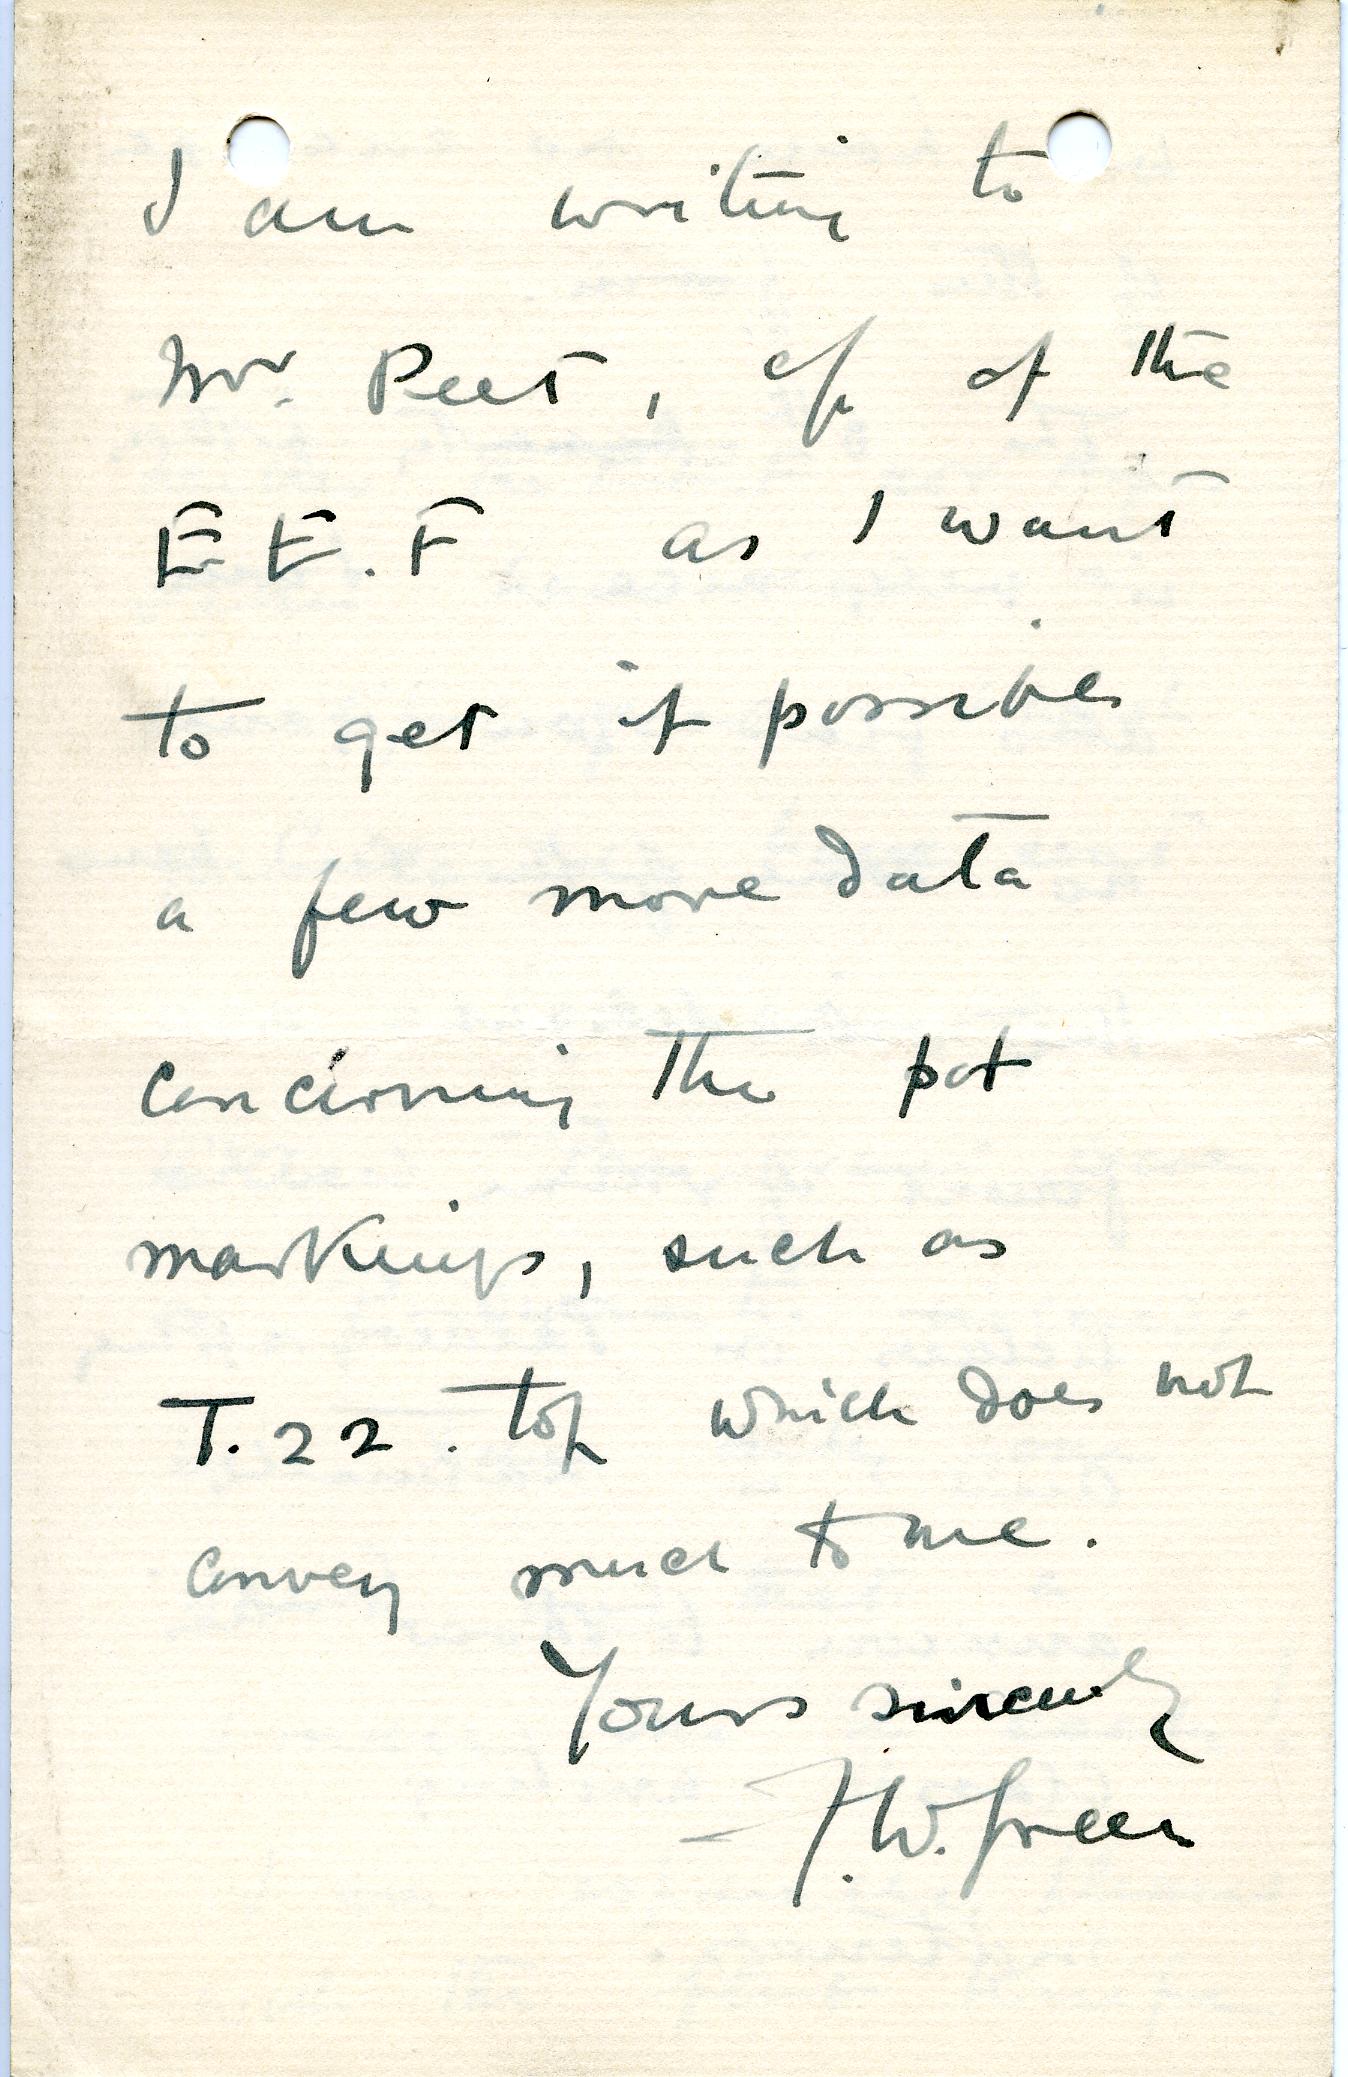 I am writing to
Mr. Peet, c/o of the
E.E.F as I want
to get if possible
a few more data
concerning the pot
markings, such as
T.22. top which does not
convey much to me.
Yours sincerely
F.W. Green